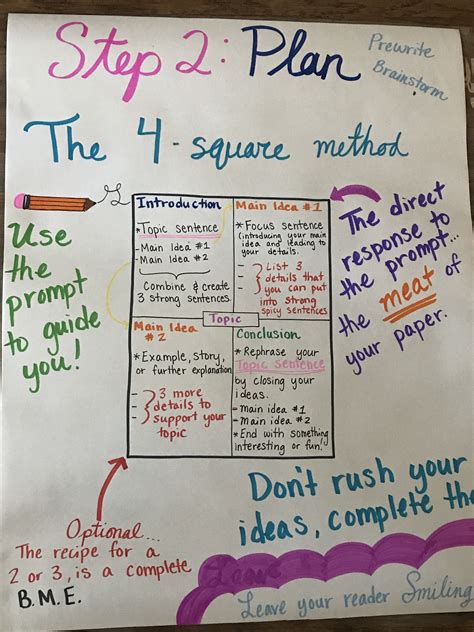 Step 2: Plan
Prewrite
Brainstorm
The 4-square method
Use
the
prompt
to guide
you!
Introduction
* Topic sentence
- Main Idea #1
- Main Idea #2
Combine & create
3 strong sentences.
Main Idea #1
* Focus sentence
(introducing your main
idea and leading to
your details.
- List 3
- details that
- you can put
into strong
spicy sentences
Topic
Main Idea
#2
* Example, story,
or further explanation
- 3 more
- details to
- support your
topic
Conclusion
* Rephrase your
Topic sentence
by closing your
ideas.
- Main idea #1
- main idea #2
* End with something
interesting or fun!
The direct
response to
the prompt...
the meat of
your paper.
Optional...
The recipe for a
2 or 3, is a complete
B.M.E.
Don't rush your
ideas, complete the
Leave your reader Smiling